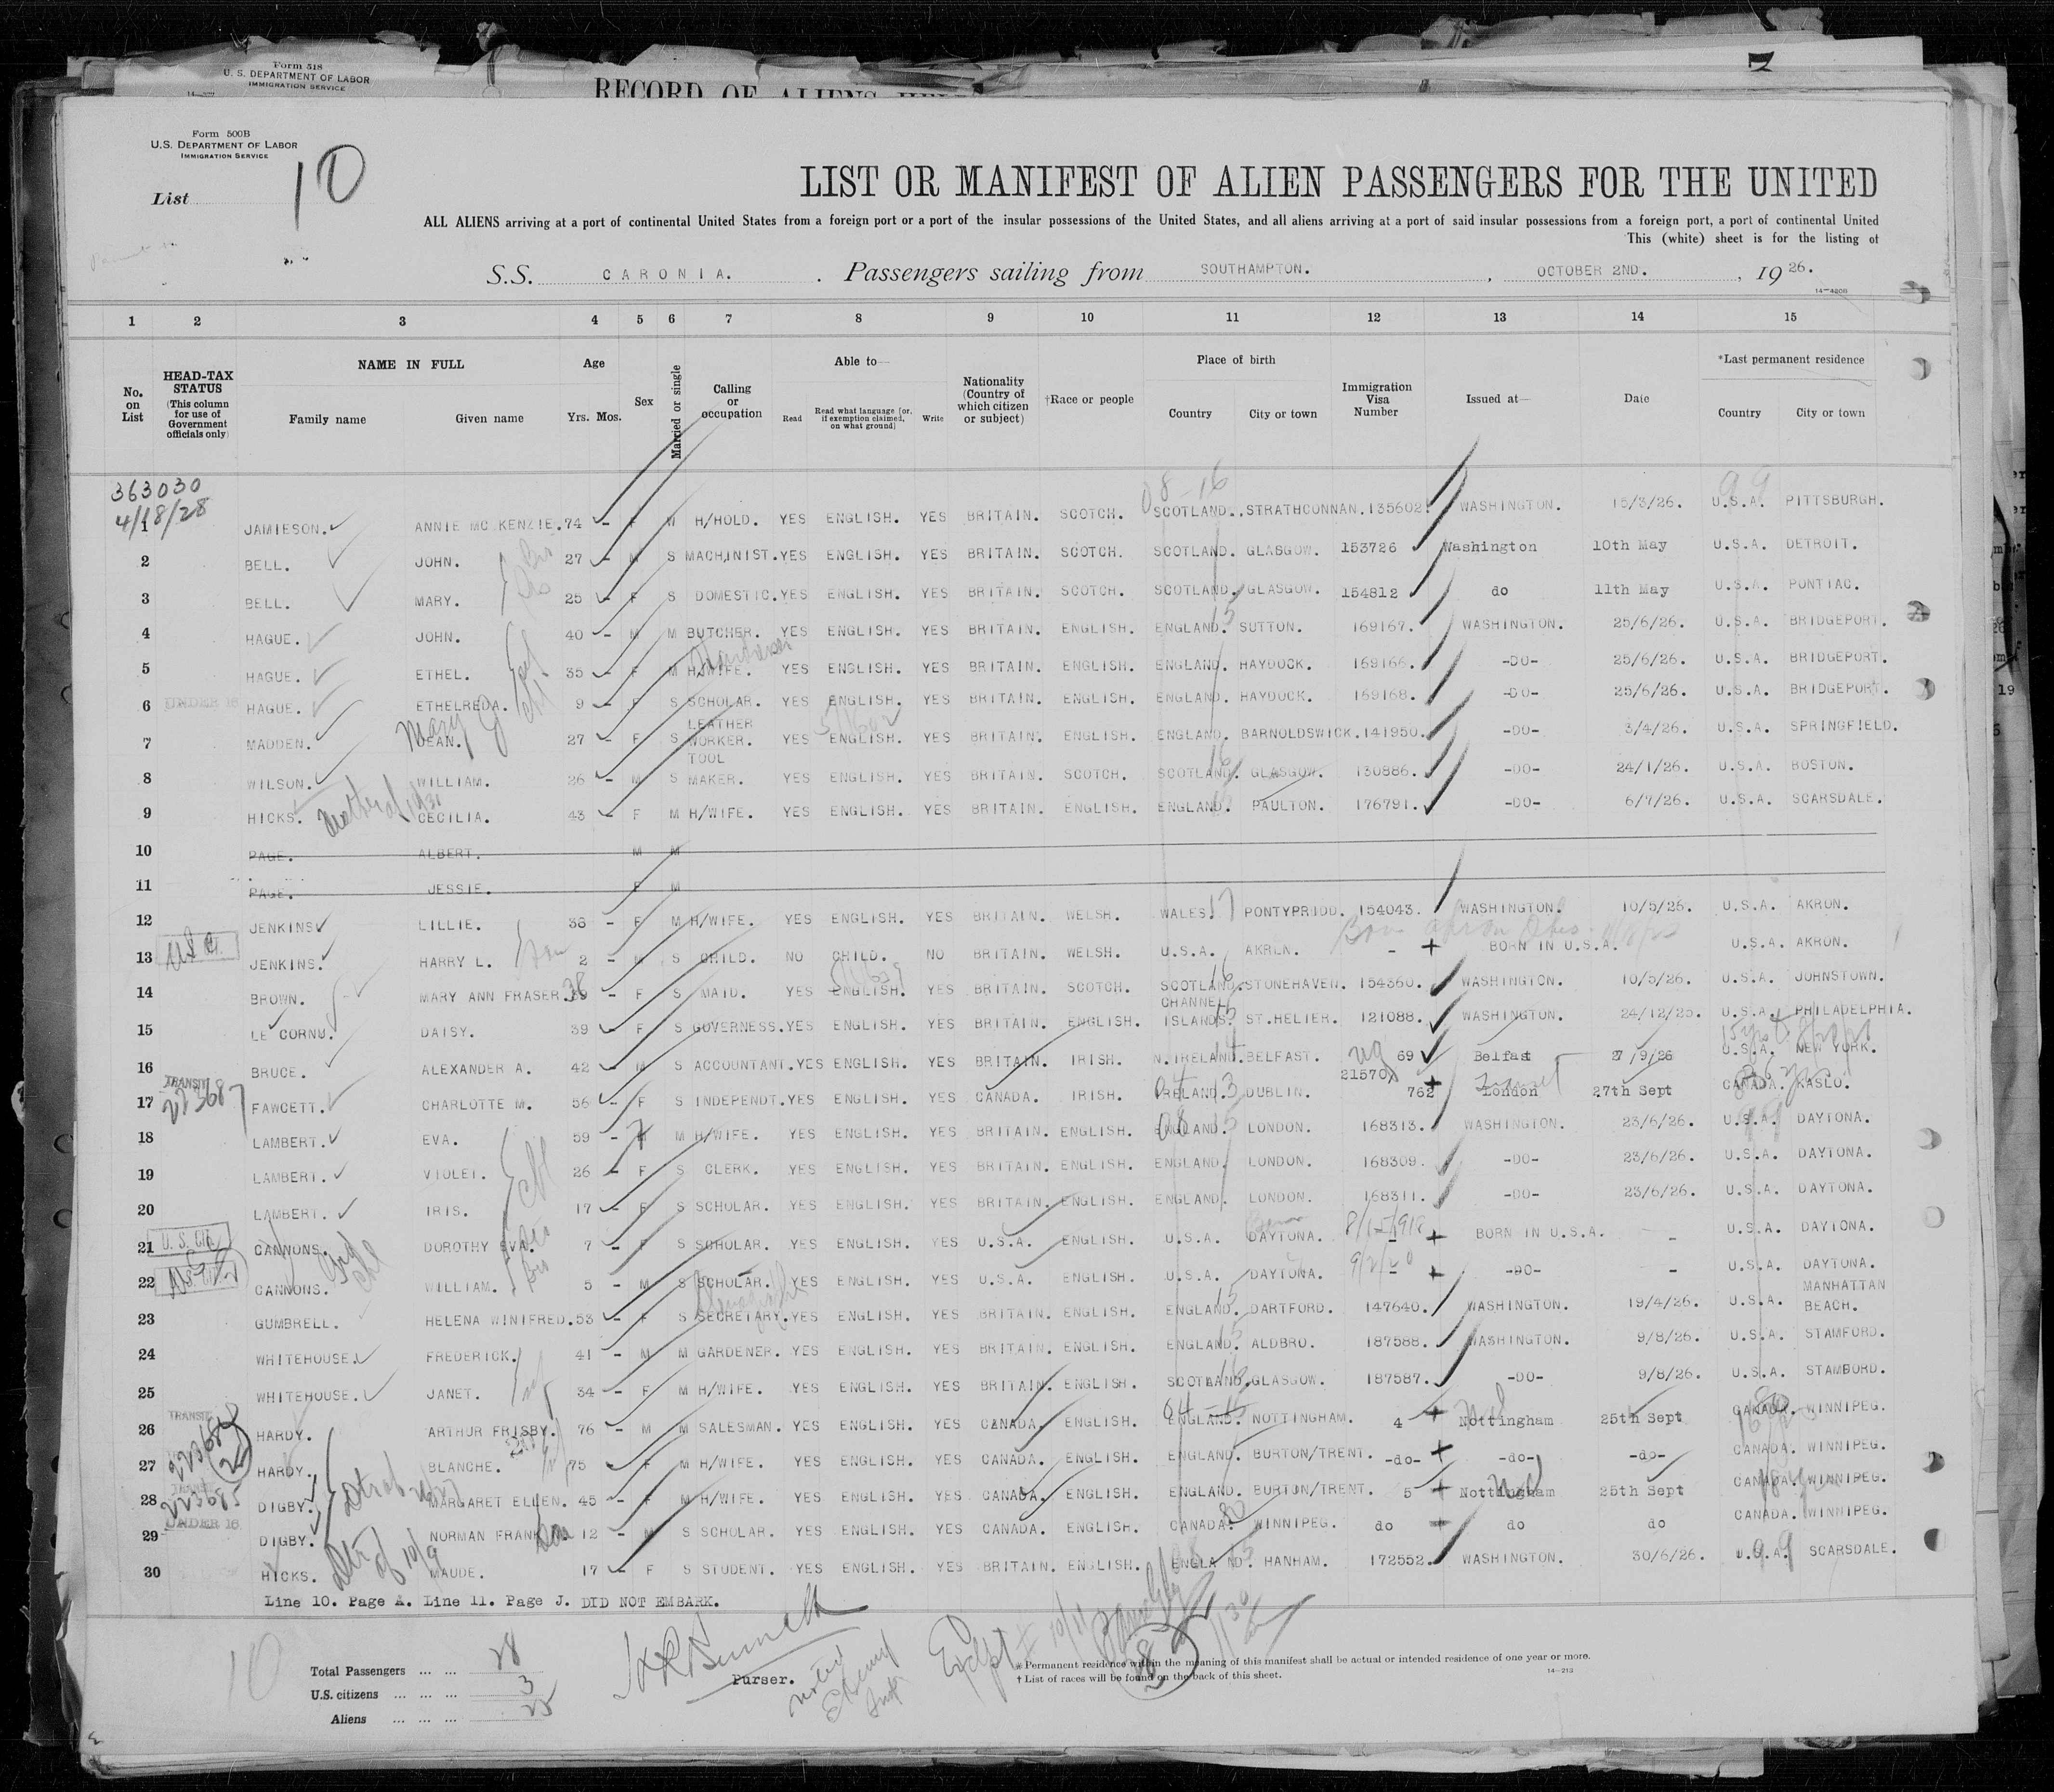 Form 518
U. S. DEPARTMENT OF LABOR
IMMIGRATION SERVICE
RECORD OF ALIENS
Form 500B
U.S. DEPARTMENT OF LABOR
IMMIGRATION SERVICE
List 10
LIST OR MANIFEST OF ALIEN PASSENGERS FOR THE UNITED
ALL ALIENS arriving at a port of continental United States from a foreign port or a port of the insular possessions of the United States, and all aliens arriving at a port of said insular possessions from a foreign port, a port of continental United
This (white) sheet is for the listing of
S.S. CARONIA. Passengers sailing from SOUTHAMPTON. , OCTOBER 2ND. , 19 26.
1 2 3 4 5 6 7 8 9 10 11 12 13 14 15
No. on List
HEAD-TAX STATUS (This column for use of Government officials only)
NAME IN FULL Family name Given name
Age Yrs. Mos.
Sex
Married or single
Calling or occupation
Able to— Read Read what language (or, if exemption claimed, on what ground) Write
Nationality (Country of which citizen or subject)
†Race or people
Place of birth Country City or town
Immigration Visa Number
Issued at—
Date
*Last permanent residence Country City or town
363030
4/18/28
1 JAMIESON. ANNIE MC KENZIE. 74 - F W H/HOLD. YES ENGLISH. YES BRITAIN. SCOTCH. SCOTLAND. STRATHCONNAN. 135602. WASHINGTON. 15/3/26. U.S.A. PITTSBURGH.
2 BELL. JOHN. 27 - M S MACHINIST. YES ENGLISH. YES BRITAIN. SCOTCH. SCOTLAND. GLASGOW. 153726 Washington 10th May U.S.A. DETROIT.
3 BELL. MARY. 25 - F S DOMESTIC. YES ENGLISH. YES BRITAIN. SCOTCH. SCOTLAND. GLASGOW. 154812 do 11th May U.S.A. PONTIAC.
4 HAGUE. JOHN. 40 - M M BUTCHER. YES ENGLISH. YES BRITAIN. ENGLISH. ENGLAND. SUTTON. 169167. WASHINGTON. 25/6/26. U.S.A. BRIDGEPORT.
5 HAGUE. ETHEL. 35 - F M H/WIFE. YES ENGLISH. YES BRITAIN. ENGLISH. ENGLAND. HAYDOCK. 169166. -DO- 25/6/26. U.S.A. BRIDGEPORT.
6 UNDER 16 HAGUE. ETHELREDA. 9 - F S SCHOLAR. YES ENGLISH. YES BRITAIN. ENGLISH. ENGLAND. HAYDOCK. 169168. -DO- 25/6/26. U.S.A. BRIDGEPORT.
7 MADDEN. Mary JEAN. 27 - F S LEATHER WORKER. YES ENGLISH. YES BRITAIN. ENGLISH. ENGLAND. BARNOLDSWICK. 141950. -DO- 3/4/26. U.S.A. SPRINGFIELD.
8 WILSON. WILLIAM. 26 - M S TOOL MAKER. YES ENGLISH. YES BRITAIN. SCOTCH. SCOTLAND. GLASGOW. 130886. -DO- 24/1/26. U.S.A. BOSTON.
9 HICKS. CECILIA. 43 - F M H/WIFE. YES ENGLISH. YES BRITAIN. ENGLISH. ENGLAND. PAULTON. 176791. -DO- 6/7/26. U.S.A. SCARSDALE.
10 PAGE. ALBERT. M M
11 PAGE. JESSIE. F M
12 JENKINS LILLIE. 36 - F M H/WIFE. YES ENGLISH. YES BRITAIN. WELSH. WALES. PONTYPRIDD. 154043. WASHINGTON. 10/5/26. U.S.A. AKRON.
13 JENKINS. HARRY L. 2 - M S CHILD. NO CHILD. NO BRITAIN. WELSH. U.S.A. AKRON. - BORN IN U.S.A. U.S.A. AKRON.
14 BROWN. MARY ANN FRASER. 38 - F S MAID. YES ENGLISH. YES BRITAIN. SCOTCH. SCOTLAND. STONEHAVEN. 154360. WASHINGTON. 10/5/26. U.S.A. JOHNSTOWN.
15 LE CORNU. DAISY. 39 - F S GOVERNESS. YES ENGLISH. YES BRITAIN. ENGLISH. CHANNEL ISLANDS. ST.HELIER. 121088. WASHINGTON. 24/12/25. U.S.A. PHILADELPHIA.
16 BRUCE. ALEXANDER A. 42 - M S ACCOUNTANT. YES ENGLISH. YES BRITAIN. IRISH. N.IRELAND. BELFAST. 69 Belfast 27/9/26 U.S.A. NEW YORK.
21570
17 TRANSIT 273687 FAWCETT. CHARLOTTE M. 56 - F S INDEPENDT. YES ENGLISH. YES CANADA. IRISH. IRELAND. DUBLIN. 762 London 27th Sept CANADA. KASLO.
18 LAMBERT. EVA. 59 - M M H/WIFE. YES ENGLISH. YES BRITAIN. ENGLISH. ENGLAND. LONDON. 168313. WASHINGTON. 23/6/26. U.S.A. DAYTONA.
19 LAMBERT. VIOLET. 26 - F S CLERK. YES ENGLISH. YES BRITAIN. ENGLISH. ENGLAND. LONDON. 168309. -DO- 23/6/26. U.S.A. DAYTONA.
20 LAMBERT. IRIS. 17 - F S SCHOLAR. YES ENGLISH. YES BRITAIN. ENGLISH. ENGLAND. LONDON. 168311. -DO- 23/6/26. U.S.A. DAYTONA.
21 U. S. Cit CANNONS. DOROTHY EVA. 7 - F S SCHOLAR. YES ENGLISH. YES U.S.A. ENGLISH. U.S.A. DAYTONA. - BORN IN U.S.A. - U.S.A. DAYTONA.
22 CANNONS. WILLIAM. 5 - M S SCHOLAR. YES ENGLISH. YES U.S.A. ENGLISH. U.S.A. DAYTONA. - -DO- - U.S.A. DAYTONA.
23 GUMBRELL. HELENA WINIFRED. 53 - F S SECRETARY. YES ENGLISH. YES BRITAIN. ENGLISH. ENGLAND. DARTFORD. 147640. WASHINGTON. 19/4/26. U.S.A. MANHATTAN BEACH.
24 WHITEHOUSE. FREDERICK. 41 - M M GARDENER. YES ENGLISH. YES BRITAIN. ENGLISH. ENGLAND. ALDBRO. 187588. WASHINGTON. 9/8/26. U.S.A. STAMFORD.
25 WHITEHOUSE. JANET. 34 - F M H/WIFE. YES ENGLISH. YES BRITAIN. ENGLISH. SCOTLAND. GLASGOW. 187587. -DO- 9/8/26. U.S.A. STAMBORD.
26 TRANSIT HARDY. ARTHUR FRISBY. 76 - M M SALESMAN. YES ENGLISH. YES CANADA. ENGLISH. ENGLAND. NOTTINGHAM. 4 Nottingham 25th Sept CANADA. WINNIPEG.
27 HARDY. BLANCHE. 75 - F M H/WIFE. YES ENGLISH. YES CANADA. ENGLISH. ENGLAND. BURTON/TRENT. -do- -do- -do- CANADA. WINNIPEG.
28 223685 DIGBY. MARGARET ELLEN. 45 - F M H/WIFE. YES ENGLISH. YES CANADA. ENGLISH. ENGLAND. BURTON/TRENT. 5 Nottingham 25th Sept CANADA. WINNIPEG.
29 UNDER 16 DIGBY. NORMAN FRANK 12 - M S SCHOLAR. YES ENGLISH. YES CANADA. ENGLISH. CANADA. WINNIPEG. do do do CANADA. WINNIPEG.
30 HICKS. MAUDE. 17 - F S STUDENT. YES ENGLISH. YES BRITAIN. ENGLISH. ENGLAND. HANHAM. 172552. WASHINGTON. 30/6/26. U.S.A. SCARSDALE.
Line 10. Page A. Line 11. Page J. DID NOT EMBARK.
10
Total Passengers ... ... 28
U.S. citizens ... ... ... 3
Aliens ... ... ... 25
Purser.
* Permanent residence within the meaning of this manifest shall be actual or intended residence of one year or more.
† List of races will be found on the back of this sheet.
14—213